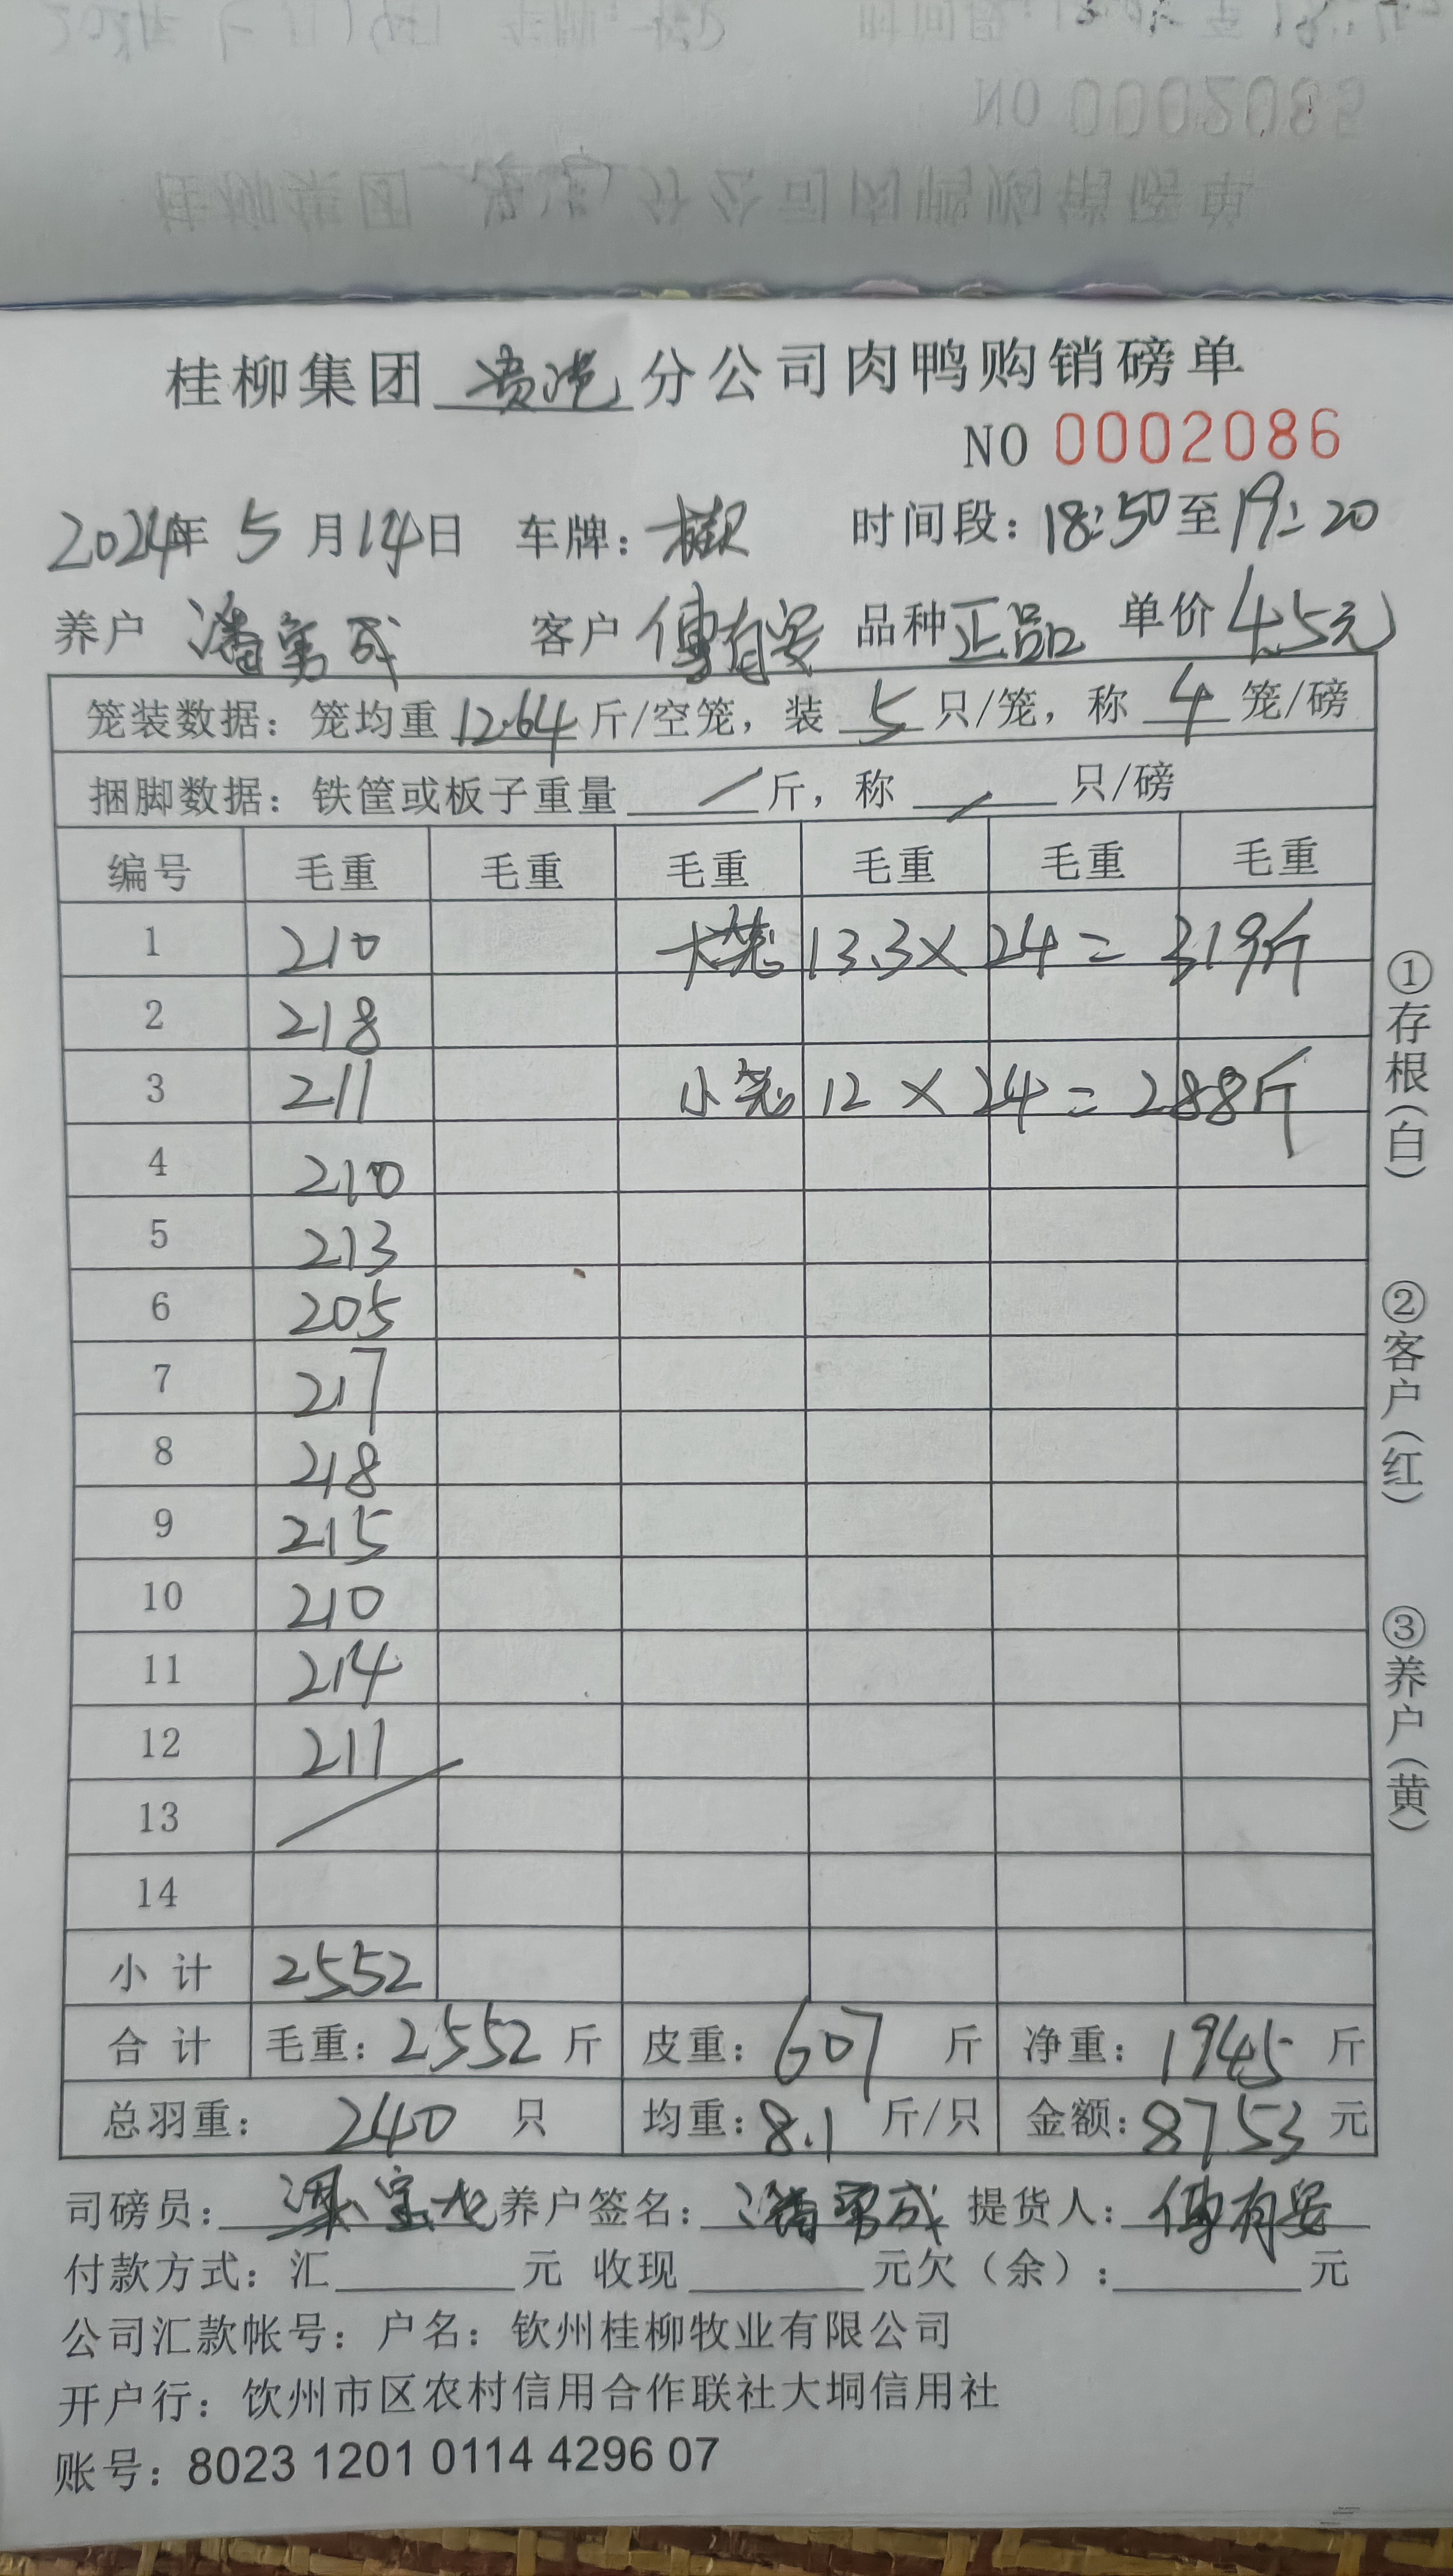 桂柳集团 贵港 分公司肉鸭购销磅单
NO 0002086
2024年 5 月 14 日 车牌: 时间段: 18:50 至 19:20
养户 潘寓成 客户 傅有安 品种 正品 单价 4.5元
笼装数据: 笼均重 12.64 斤/空笼, 装 5 只/笼, 称 4 笼/磅
捆脚数据: 铁筐或板子重量 / 斤, 称 / 只/磅
编号 毛重 毛重 毛重 毛重 毛重 毛重
1 210 大笼 13.3 × 24 = 319斤
2 218
3 211 小笼 12 × 24 = 288斤
4 210
5 213
6 205
7 217
8 218
9 215
10 210
11 214
12 211
13 /
14
小计 2552
合计 毛重: 2552 斤 皮重: 607 斤 净重: 1945 斤
总羽重: 240 只 均重: 8.1 斤/只 金额: 8753 元
司磅员: 养户签名: 提货人: 傅有安
付款方式: 汇 元 收现 元欠(余): 元
公司汇款帐号: 户名: 钦州桂柳牧业有限公司
开户行: 饮州市区农村信用合作联社大垌信用社
账号: 8023 1201 0114 4296 07
①存根(白)
②客户(红)
③养户(黄)